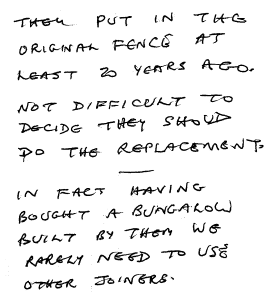 THEY PUT IN THE
ORIGINAL FENCE AT
LEAST 20 YEARS AGO.
NOT DIFFICULT TO
DECIDE THEY SHOULD
DO THE REPLACEMENT.
IN FACT HAVING
BOUGHT A BUNGALOW
BUILT BY THEM WE
RARELY NEED TO USE
OTHER JOINERS.